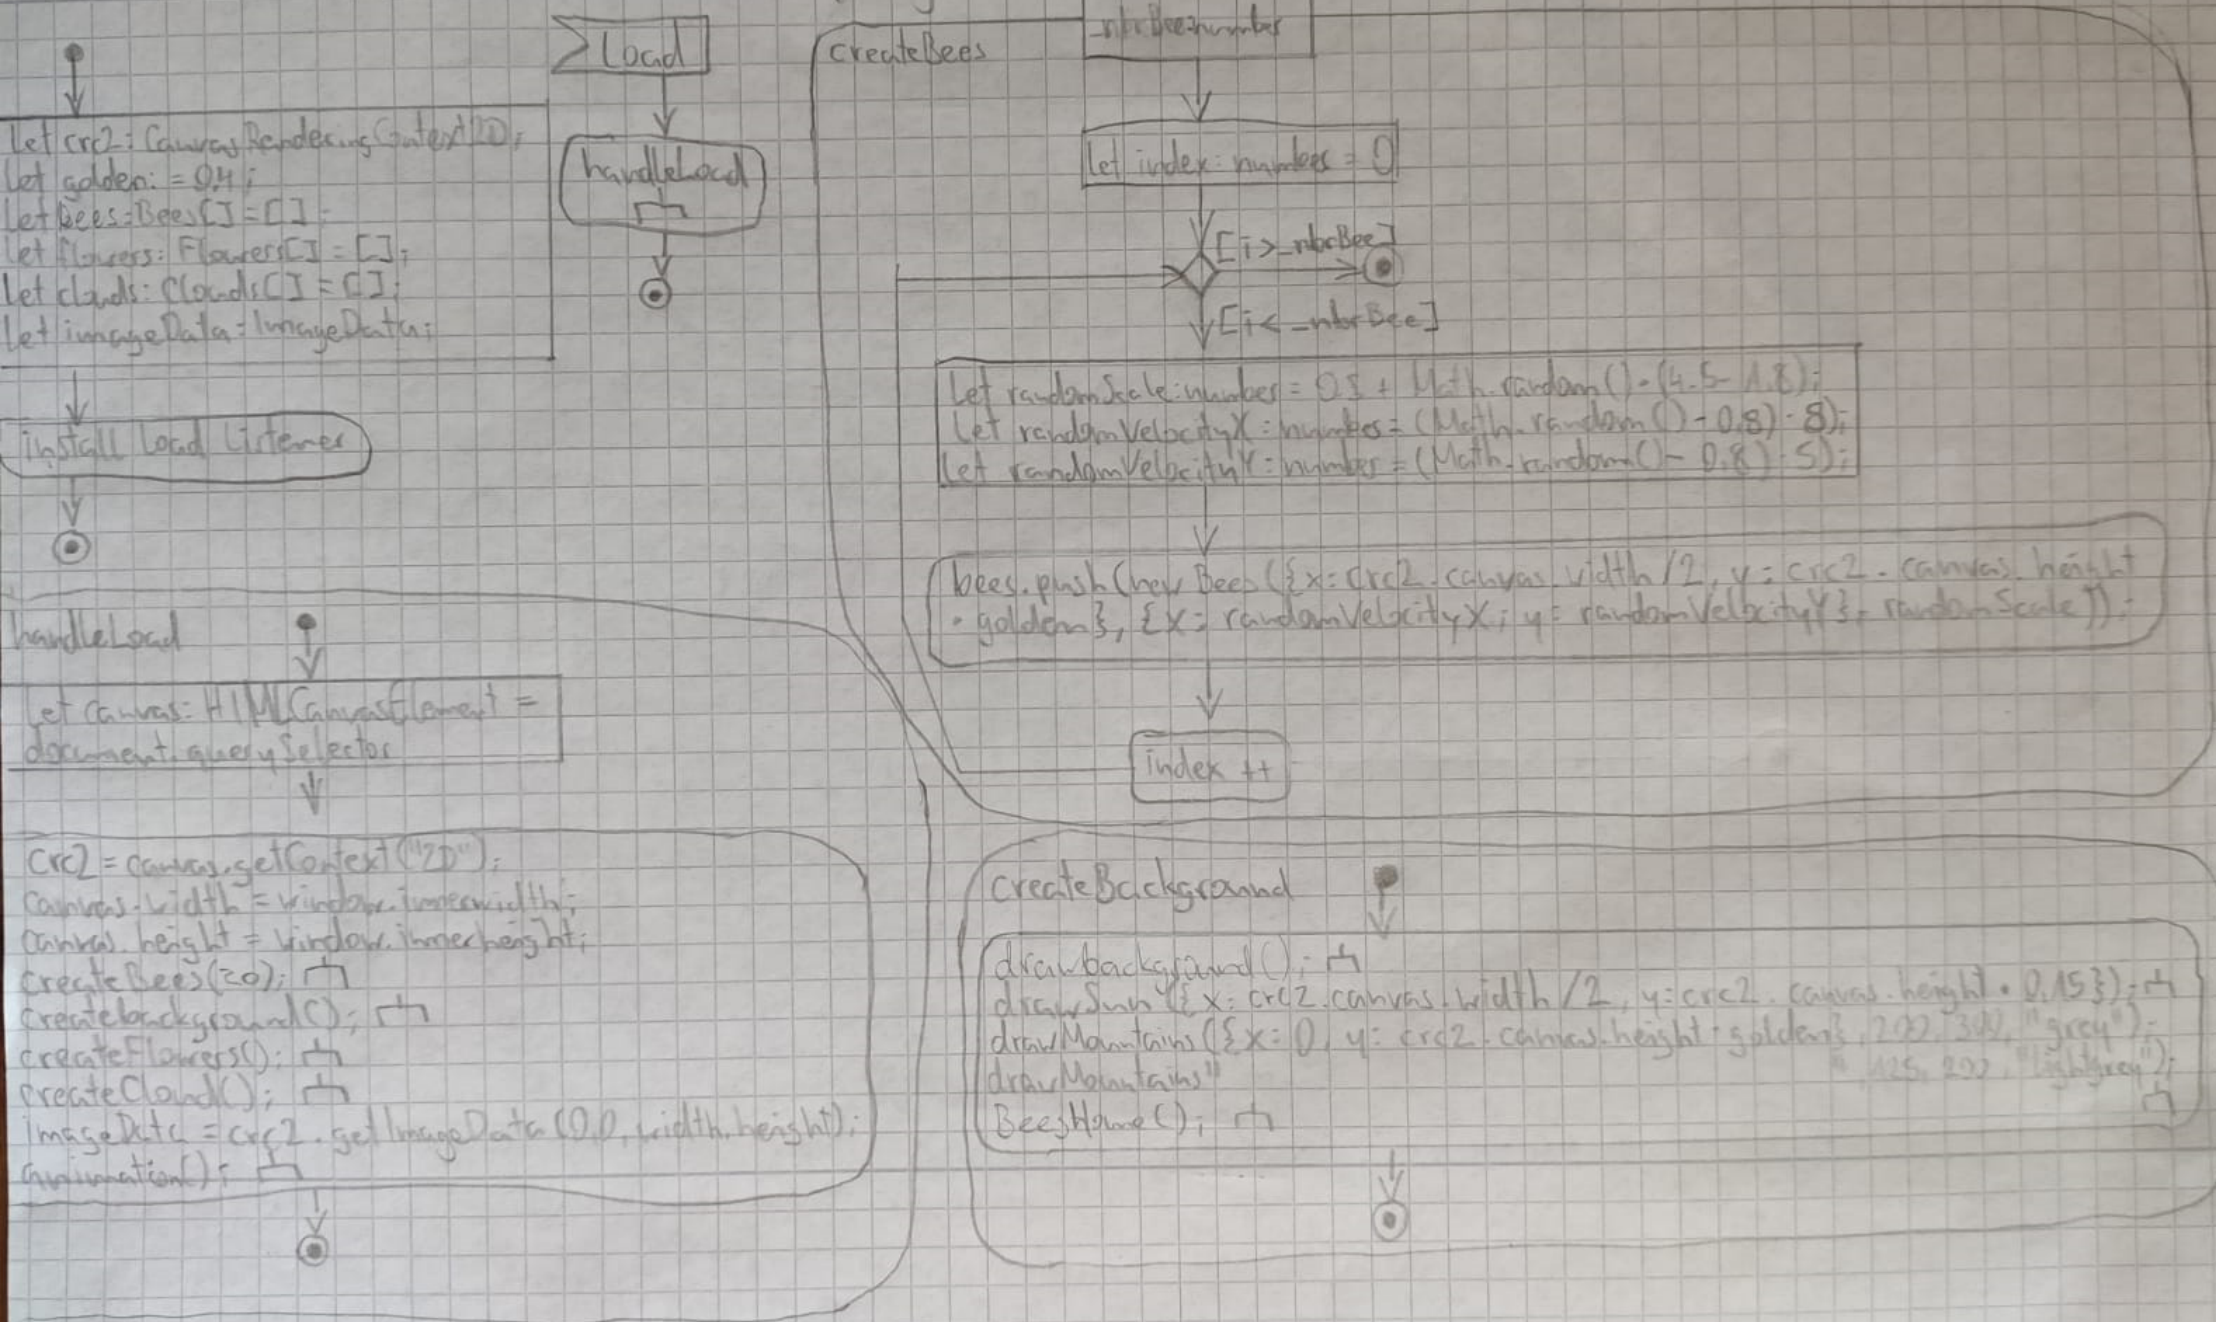 Let crc2: CanvasRenderingContext2D;
Let golden: = 0.4;
Let bees: Bees[] = [];
Let flowers: Flowers[] = [];
Let clouds: Clouds[] = [];
Let imageData: ImageData;
install Load Listener
Load
handleLoad
handleLoad
Let canvas: HTMLCanvasElement =
document.querySelector
crc2 = canvas.getContext("2D");
canvas.width = window.innerwidth;
canvas.height = window.innerheight;
createBees(20);
createbackground();
createFlowers();
createCloud();
imageData = crc2.getImageData(0,0,width,height);
animation();
createBees
_nbrBee:number
Let index: number = 0
[i>_nbrBee]
[i<_nbrBee]
Let randomScale: number = + Math.random() · (4.5 - 1.8);
Let randomVelocityX: number = (Math.random() - 0.8) · 8);
Let randomVelocityY: number = (Math.random() - 0.8) · 5);
bees.push(new Bees({x: crc2.canvas.width/2, y: crc2.canvas.height
· golden}, {x: randomVelocityX; y: randomVelocityY}, randomScale));
index ++
createBackground
drawbackground();
drawSun({x: crc2.canvas.width/2, y: crc2.canvas.height · 0.15});
drawMountains({x: 0, y: crc2.canvas.height · golden}, 200, 300, "grey");
drawMountains" " 125, 200, "lightgrey");
BeesHome();